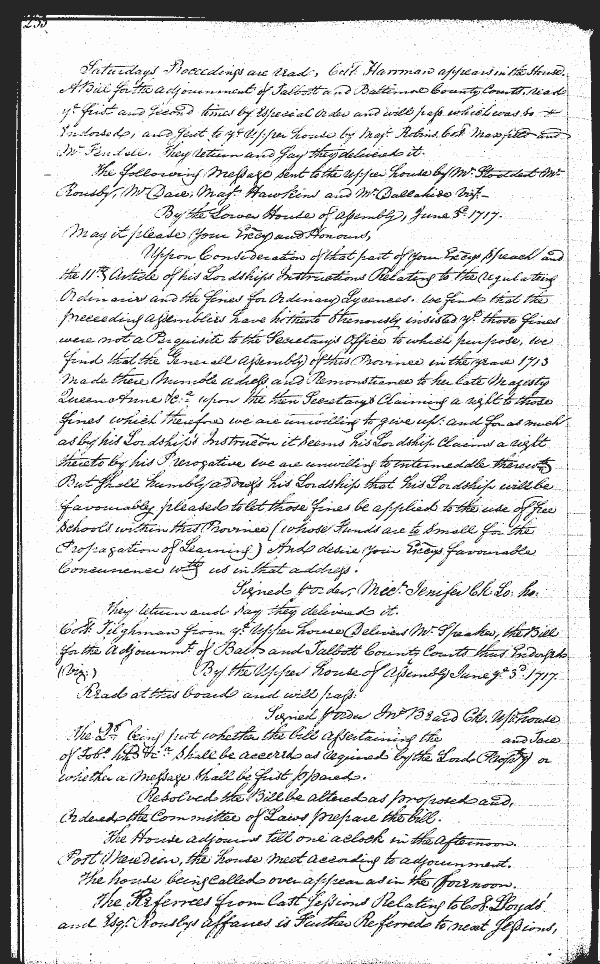 233
Saturdays Proceedings are read, Coll. Harrman appears in the House.
A Bill for the adjournment of Talbott and Baltimore County Courts, read
ye. first and second times by Especial Order and will pass which was so
Endorsed, and sent to ye. Upper house by Majr. Robins, Coll. Maxfeild and
Mr. Fendell. They return and say they delivered it.
The following Message sent to the upper house by Mr. Stoddert Mr.
Rousby, Mr. Dare, Majr. Hawkins and Mr. Ballahide Vizt.
By the Lower House of assembly, June 3d. 1717.
May it please Your Excy. and Honours,
Upon Consideration of that part of Your Excys Speach and
the 11th. Article of his Lordships Instructions Relating to the regulating
Ordinaries and the fines for Ordinary Lycences. We find that the
preceeding Assemblies have hitherto Strenously insisted yt. those fines
were not a Perquisite to the Secretarys Office to which purpose, we
find that the Generall Assembly of this Province in the year 1713
made there humble adress and Remonstrance to her late Majesty
Queen Anne &c.a upon the then Secretarys Claiming a right to those
fines which therefore we are unwilling to give up: and for as much
as by his Lordships Instruccon it seems his Lordship Claims a right
thereto by his Prerogative we are unwilling to intermeddle therewth
But shall humbly address his Lordship that his Lordship will be
favourably pleased to let those fines be applied to the use of free
Schools within this Province (whose funds are to small for the
Propagation of Learning) And desire Your Excys favourable
Concurrence wth. us in that address.
Signed p order, Mecl. Jenifer Ck. Lo. ho.
They return and say they delivered it.
Coll. Tilghman from ye. Upper house Delivers Mr. Speaker, the Bill
for the Adjournmt. of Balt. and Talbott County Courts thus Endorsed
(Viz:) By the Upper house of Assembly June ye. 3d. 1717.
Read at this board and will pass.
Signed p order Jno. Beard Ck. Up. house
The Qn. being put whether the bill Assertaining the and Tare
of Tobo. hhds &c.a shall be accerd as required by the Lord Propry or
whether a Message shall be first ppared.
Resolved the Bill be altered as proposed and,
Ordered the Committee of Laws prepare the bill.
The House adjourns till one aclock in the afternoon.
Post Meredien, the house meet according to adjournment.
The house being called over appear as in the forenoon.
The Referrees from Last Sessions Relating to Col. Lloyds
and Esqr. Rousbys affaires is Further Referred to next Sessions,